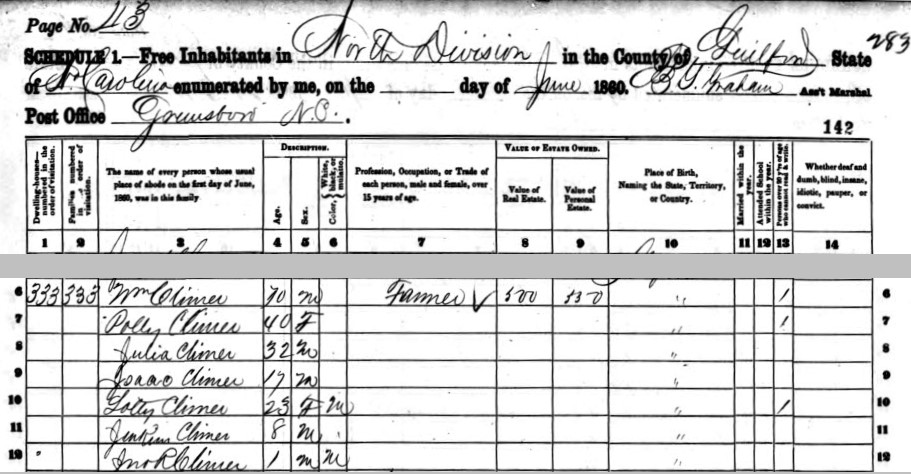 Page No. 43
SCHEDULE 1.—Free Inhabitants in North Division in the County of Guilford State 283
of N. Carolina enumerated by me, on the day of June 1860. Graham Ass't Marshal
Post Office Greensboro N.C.
142
DESCRIPTION. VALUE OF ESTATE OWNED.
Dwelling-houses—numbered in the order of visitation.
Families numbered in order of visitation.
The name of every person whose usual place of abode on the first day of June, 1860, was in this family
Age.
Sex.
Color, { White, black, or mulatto.
Profession, Occupation, or Trade of each person, male and female, over 15 years of age.
Value of Real Estate.
Value of Personal Estate.
Place of Birth, Naming the State, Territory, or Country.
Married within the year.
Attended School within the year.
Persons over 20 y'rs of age who cannot read & write.
Whether deaf and dumb, blind, insane, idiotic, pauper, or convict.
1 2 3 4 5 6 7 8 9 10 11 12 13 14
6 333 333 Wm Climer 70 m Farmer ✓ 500 550 " 1 6
7 Polly Climer 40 F " 1 7
8 Julia Climer 32 m " 8
9 Isaac Climer 17 m " 9
10 Lotty Climer 23 F M " 1 10
11 Jenkins Climer 8 m " 11
12 Jno R Climer 1 m M " 12